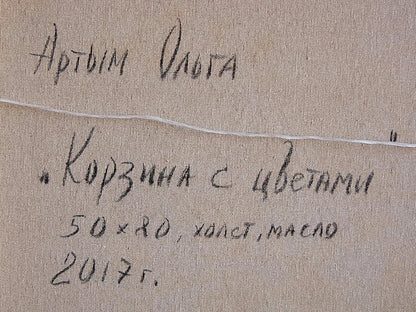 Артым Ольга
"Корзина с цветами"
50×80, холст, масло
2017 г.